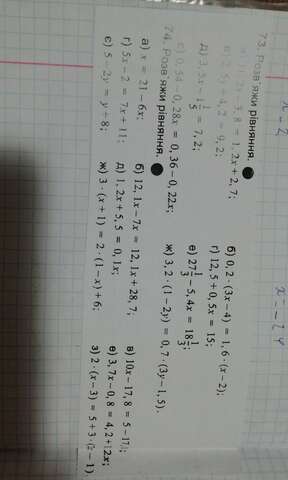 x = 2
x = -14
73. Розв'яжи рівняння.
3,8 = 1,2x + 2,7;
б) 0,2 · (3x – 4) = 1,6 · (x – 2);
+ 4,2 = 9,2;
г) 12,5 + 0,5x = 15;
д) 3,5x – 1 = 7,2;
е) 27 1/3 – 5,4x = 18 1/3;
є) 0,54 – 0,28x = 0,36 – 0,22x;
ж) 3,2 · (1 – 2y) = 0,7 · (3y – 1,5).
74. Розв'яжи рівняння.
а) x = 21 – 6x;
б) 12,1x – 7x = 12,1x + 28,7;
в) 10x – 17,8 = 5 –
г) 5x – 2 = 7x + 11;
д) 1,2x + 5,5 = 0,1x;
е) 3,7x – 0,8 = 4,2 + 2x;
є) 5 – 2y = y + 8;
ж) 3 · (x + 1) = 2 · (1 – x) + 6;
з) 2 · (x – 3) = 5 + 3 ·